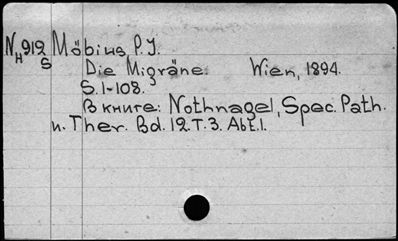 N 912 Möbius P.J.
H S Die Migräne. Wien, 1894.
S. 1-108.
В книге: Nothnagel, Spec. Path.
u. Ther. Bd. 12. T. 3. Abt. 1.